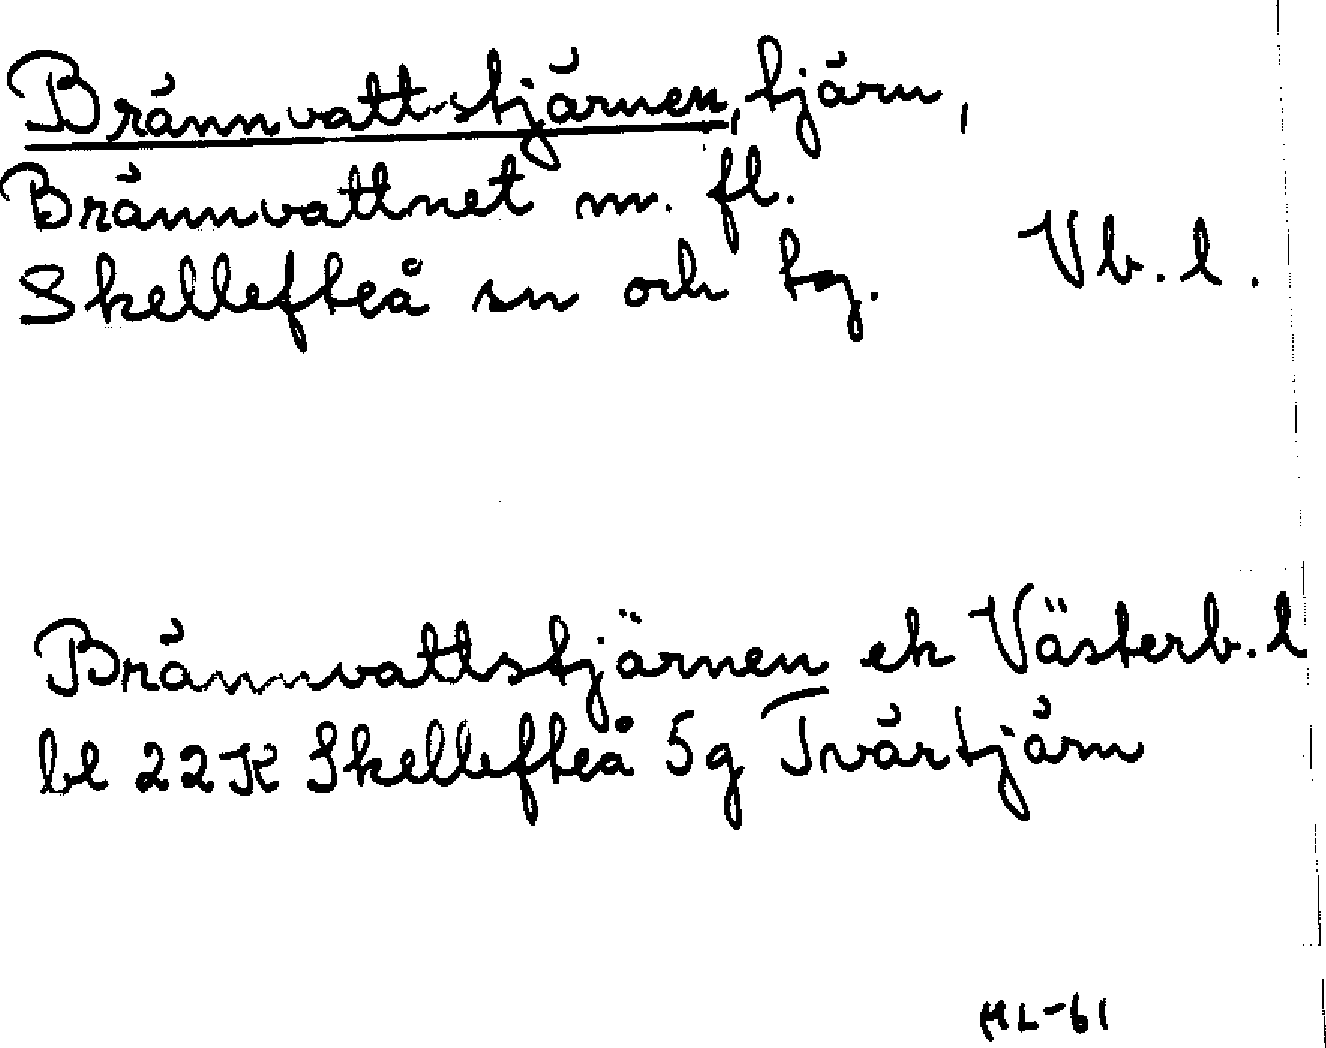 Brännvattstjärnen, tjärn,
Brännvattnet m. fl.
Skellefteå sn och tg. Vb. l.
Brännvattstjärnen ek Västerb. l
bl 22K Skellefteå 5g Tvärtjärn
HL-61